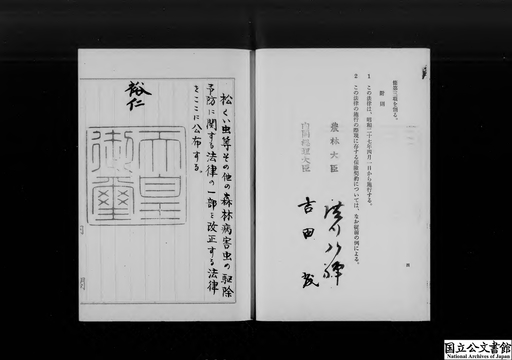 第三項を削る。
附 則
1 この法律は、昭和二十七年四月一日から施行する。
2 この法律の施行の際現に存する保険契約については、なお従前の例による。
農林大臣
内閣総理大臣
吉田茂
松くい虫等その他の森林病害虫の駆除
予防に関する法律の一部を改正する法律
をここに公布する。
裕仁
天皇
御璽
内閣
国立公文書館
National Archives of Japan